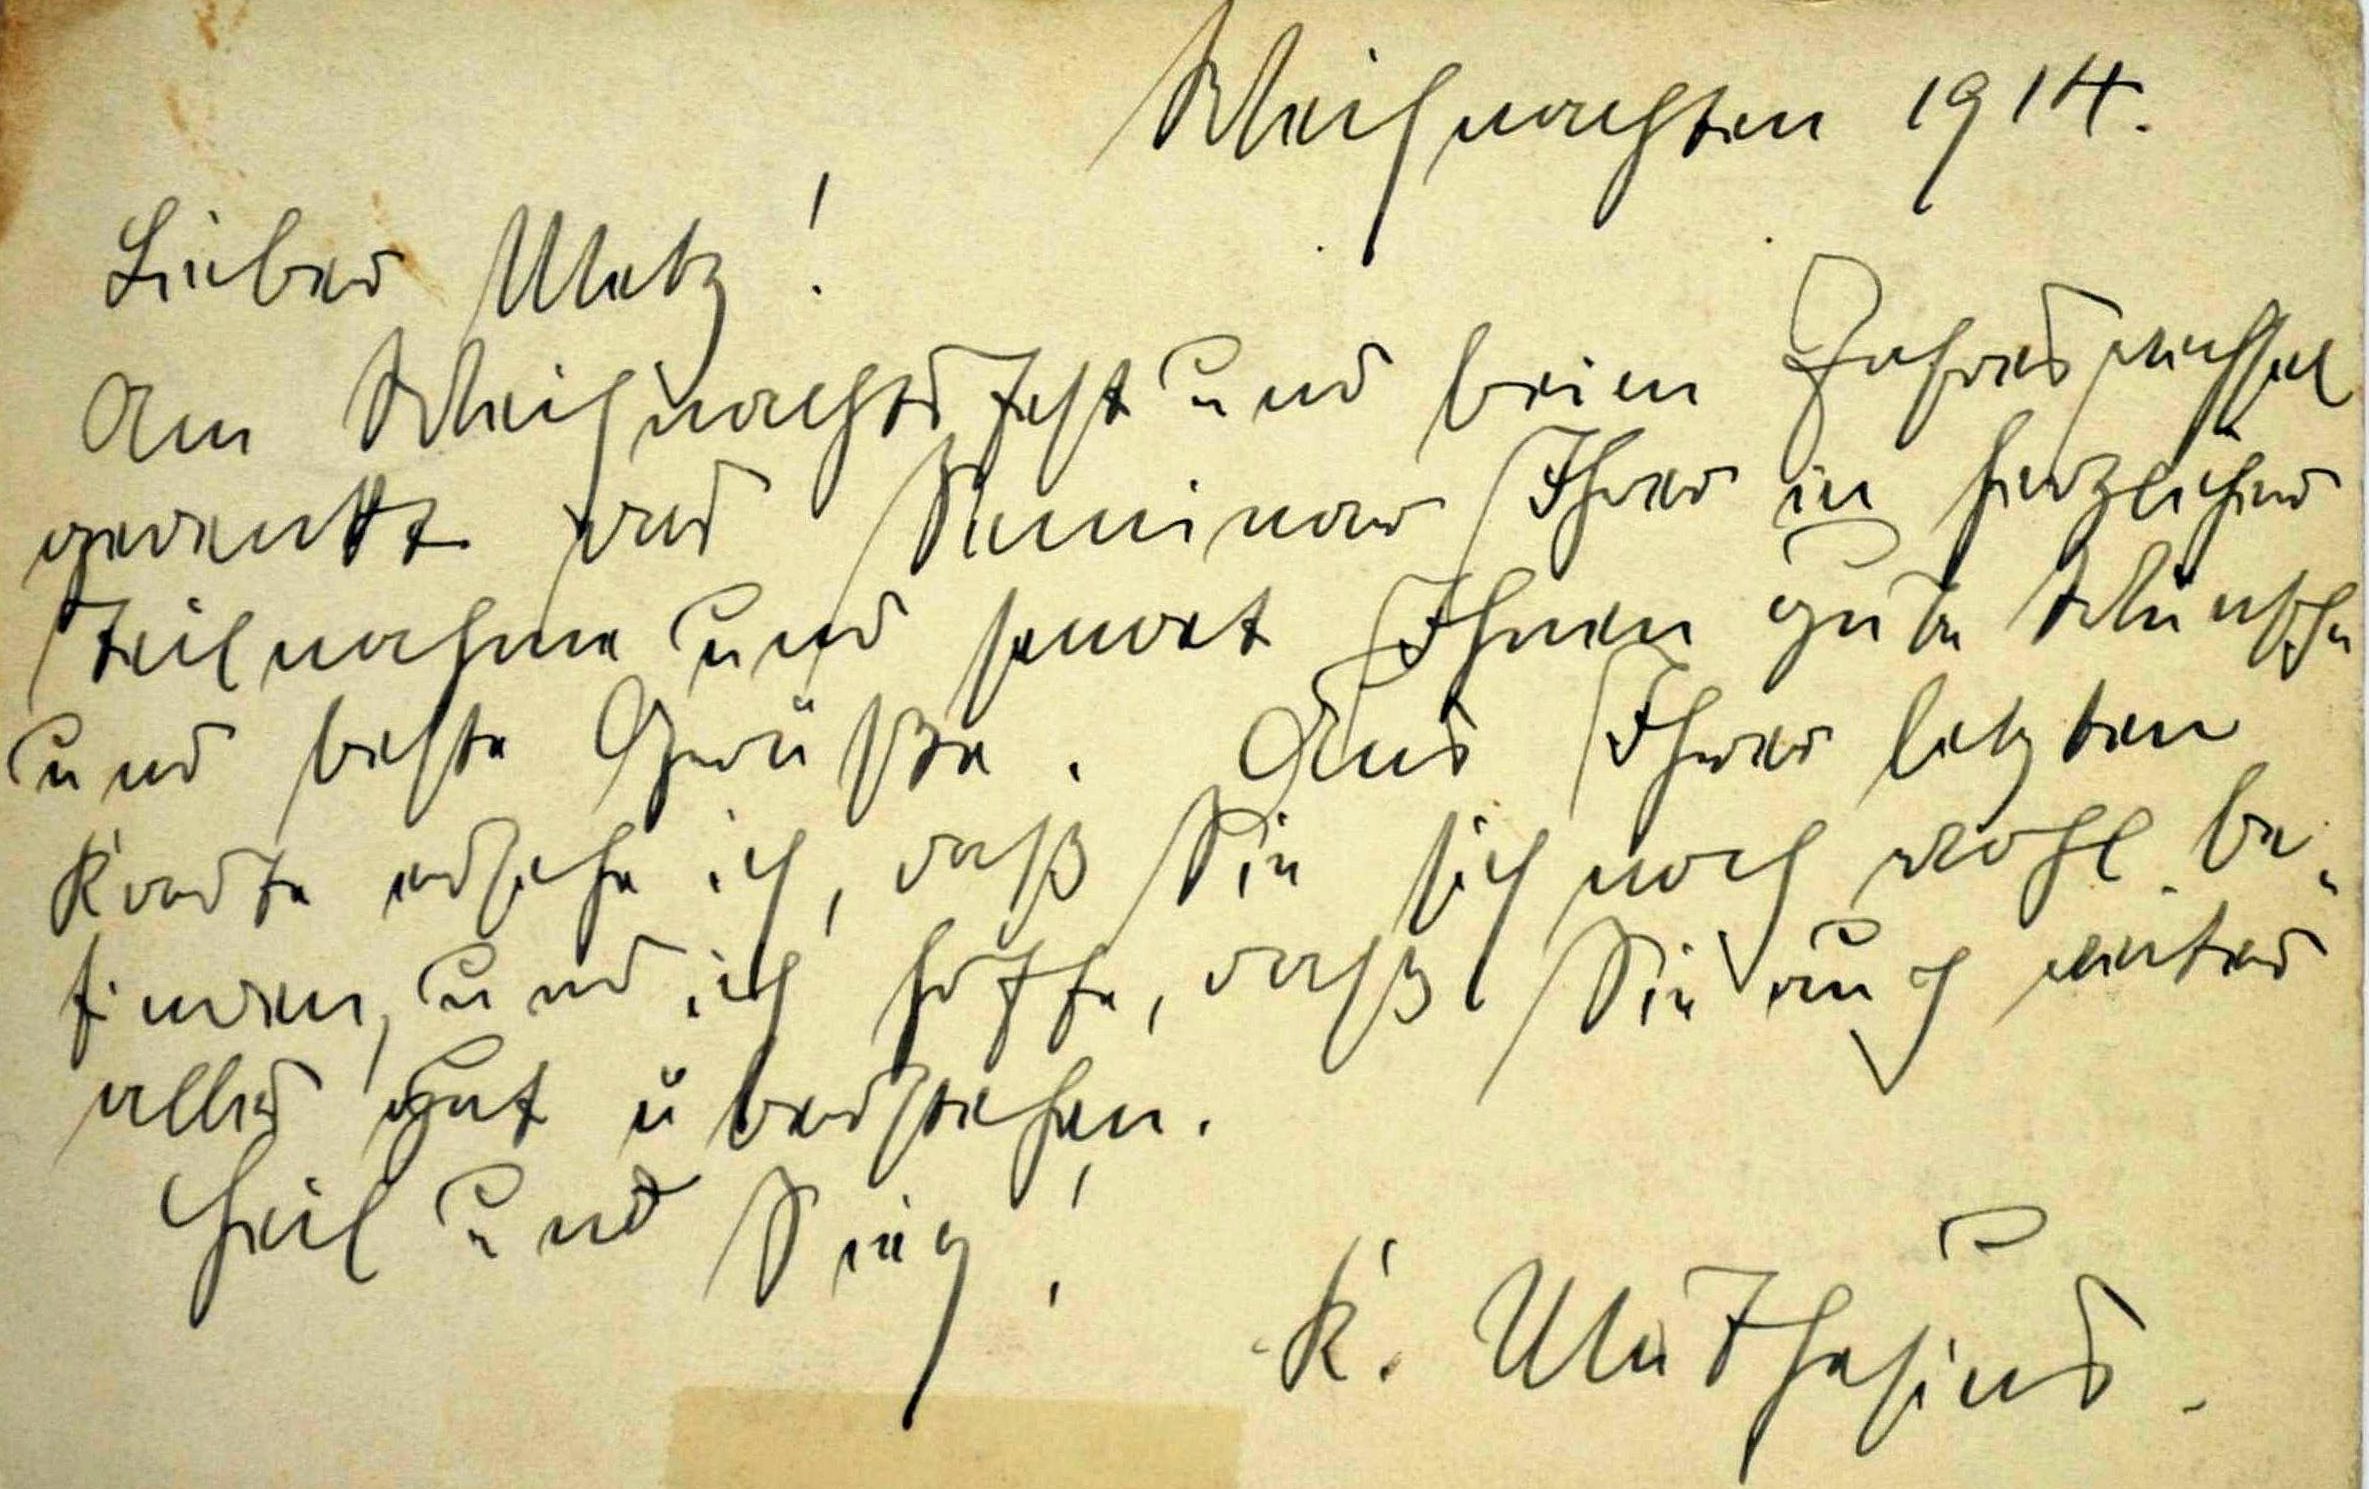 Weihnachten 1914.
Lieber Metz!
Am Weihnachtsfest und beim Jahreswechsel
gedenkt das Seminar Ihrer in herzlicher
Teilnahme und sendet Ihnen gute Wünsche
und beste Grüße. Aus Ihrer letzten
Karte ersehe ich, daß Sie sich noch wohl be-
finden, und ich hoffe, daß Sie auch weiter
alles gut überstehen.
Heil und Sieg!
K. Muthesius.